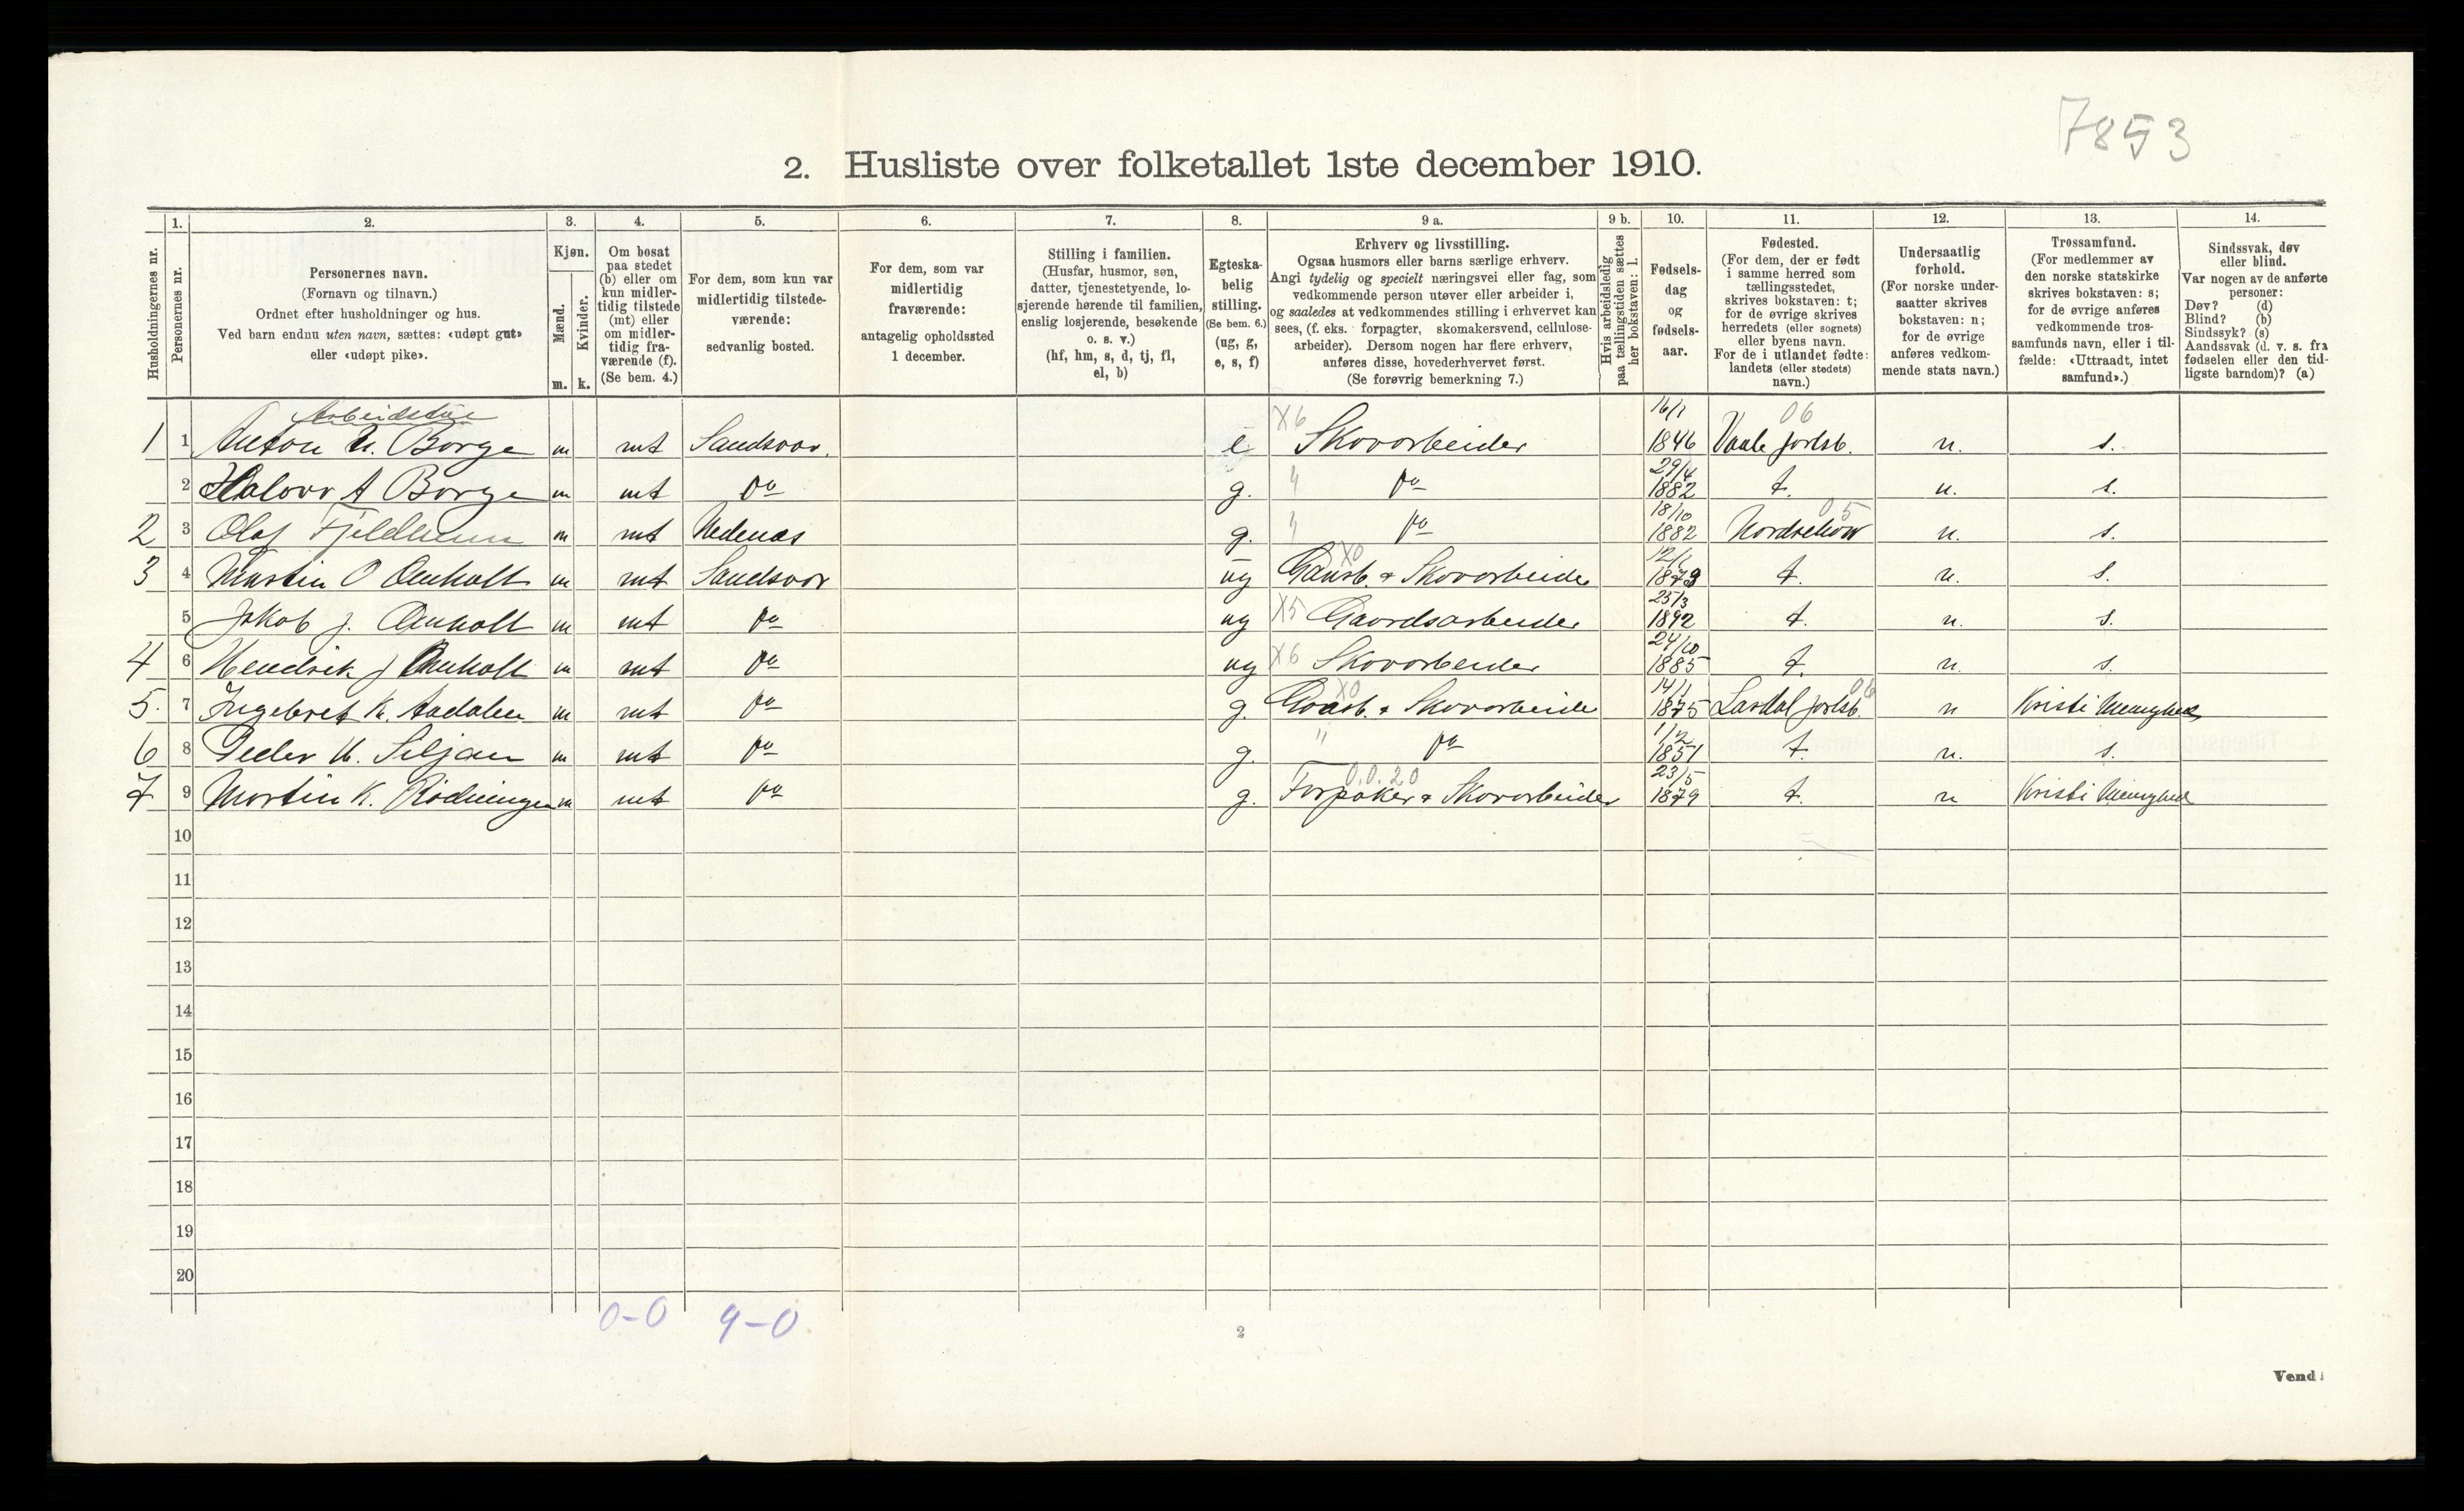 7853
2. Husliste over folketallet 1ste december 1910.
Husholdningernes nr.
1.
Personernes nr.
2.
Personernes navn.
(Fornavn og tilnavn.)
Ordnet efter husholdninger og hus.
Ved barn endnu uten navn, sættes: «udøpt gut»
eller «udøpt pike».
3.
Kjøn.
Mænd.
Kvinder.
m. k.
4.
Om bosat
paa stedet
(b) eller om
kun midler-
tidig tilstede
(mt) eller
om midler-
tidig fra-
værende (f).
(Se bem. 4.)
5.
For dem, som kun var
midlertidig tilstede-
værende:
sedvanlig bosted.
6.
For dem, som var
midlertidig
fraværende:
antagelig opholdssted
1 december.
7.
Stilling i familien.
(Husfar, husmor, søn,
datter, tjenestetyende, lo-
sjerende hørende til familien,
enslig losjerende, besøkende
o. s. v.)
(hf, hm, s, d, tj, fl,
el, b)
8.
Egteska-
belig
stilling.
(Se bem. 6.)
(ug, g,
e, s, f)
9 a.
Erhverv og livsstilling.
Ogsaa husmors eller barns særlige erhverv.
Angi tydelig og specielt næringsvei eller fag, som
vedkommende person utøver eller arbeider i,
og saaledes at vedkommendes stilling i erhvervet kan
sees, (f. eks. forpagter, skomakersvend, cellulose-
arbeider). Dersom nogen har flere erhverv,
anføres disse, hovederhvervet først.
(Se forøvrig bemerkning 7.)
9 b.
Hvis arbeidsledig
paa tællingstiden sættes
her bokstaven: l.
10.
Fødsels-
dag
og
fødsels-
aar.
11.
Fødested.
(For dem, der er født
i samme herred som
tællingsstedet,
skrives bokstaven: t;
for de øvrige skrives
herredets (eller sognets)
eller byens navn.
For de i utlandet fødte:
landets (eller stedets)
navn.)
12.
Undersaatlig
forhold.
(For norske under-
saatter skrives
bokstaven: n;
for de øvrige
anføres vedkom-
mende stats navn.)
13.
Trossamfund.
(For medlemmer av
den norske statskirke
skrives bokstaven: s;
for de øvrige anføres
vedkommende tros-
samfunds navn, eller i til-
fælde: «Uttraadt, intet
samfund».)
14.
Sindssvak, døv
eller blind.
Var nogen av de anførte
personer:
Døv? (d)
Blind? (b)
Sindssyk? (s)
Aandssvak (d. v. s. fra
fødselen eller den tid-
ligste barndom)? (a)
Arbeidstue
1 1 Anton H. Borge m mt Sandsvær. e X6 Skovarbeider 16/1 1846 06 Vaale Jarlsb. n. s.
2 Halovr A Borge m mt do g. " do 29/4 1882 t. n. s.
2 3 Olaf Fjeldheim m mt Hedenes g. " do 18/10 1882 05 Nordrehov n. s.
3 4 Martin O Omholt m mt Sandsvær ug X0 Gaarb. & Skovarbeide 12/2 1873 t. n. s.
5 Jakob J. Omholt m mt do ug X5 Gaardsarbeider 25/3 1892 t. n. s.
4 6 Hendrik J Omholt m mt do ug X6 Skovarbeider 24/10 1885 t. n. s.
5. 7 Ingebret K. Aadalen m mt do g. X0 Gaarb. & Skovarbeide 14/1 1875 06 Lardal Jarlsb. n Kristi Menighed
6 8 Peder H. Siljan m mt do g. " do 1/2 1851 t. n. s.
7 9 Martin K. Rødningen m mt do g. 0.0.20 Forpakter & Skovarbeider 23/5 1879 t. n Kristi Menighed
10
11
12
13
14
15
16
17
18
19
20
0-0 9-0
2
Vend!